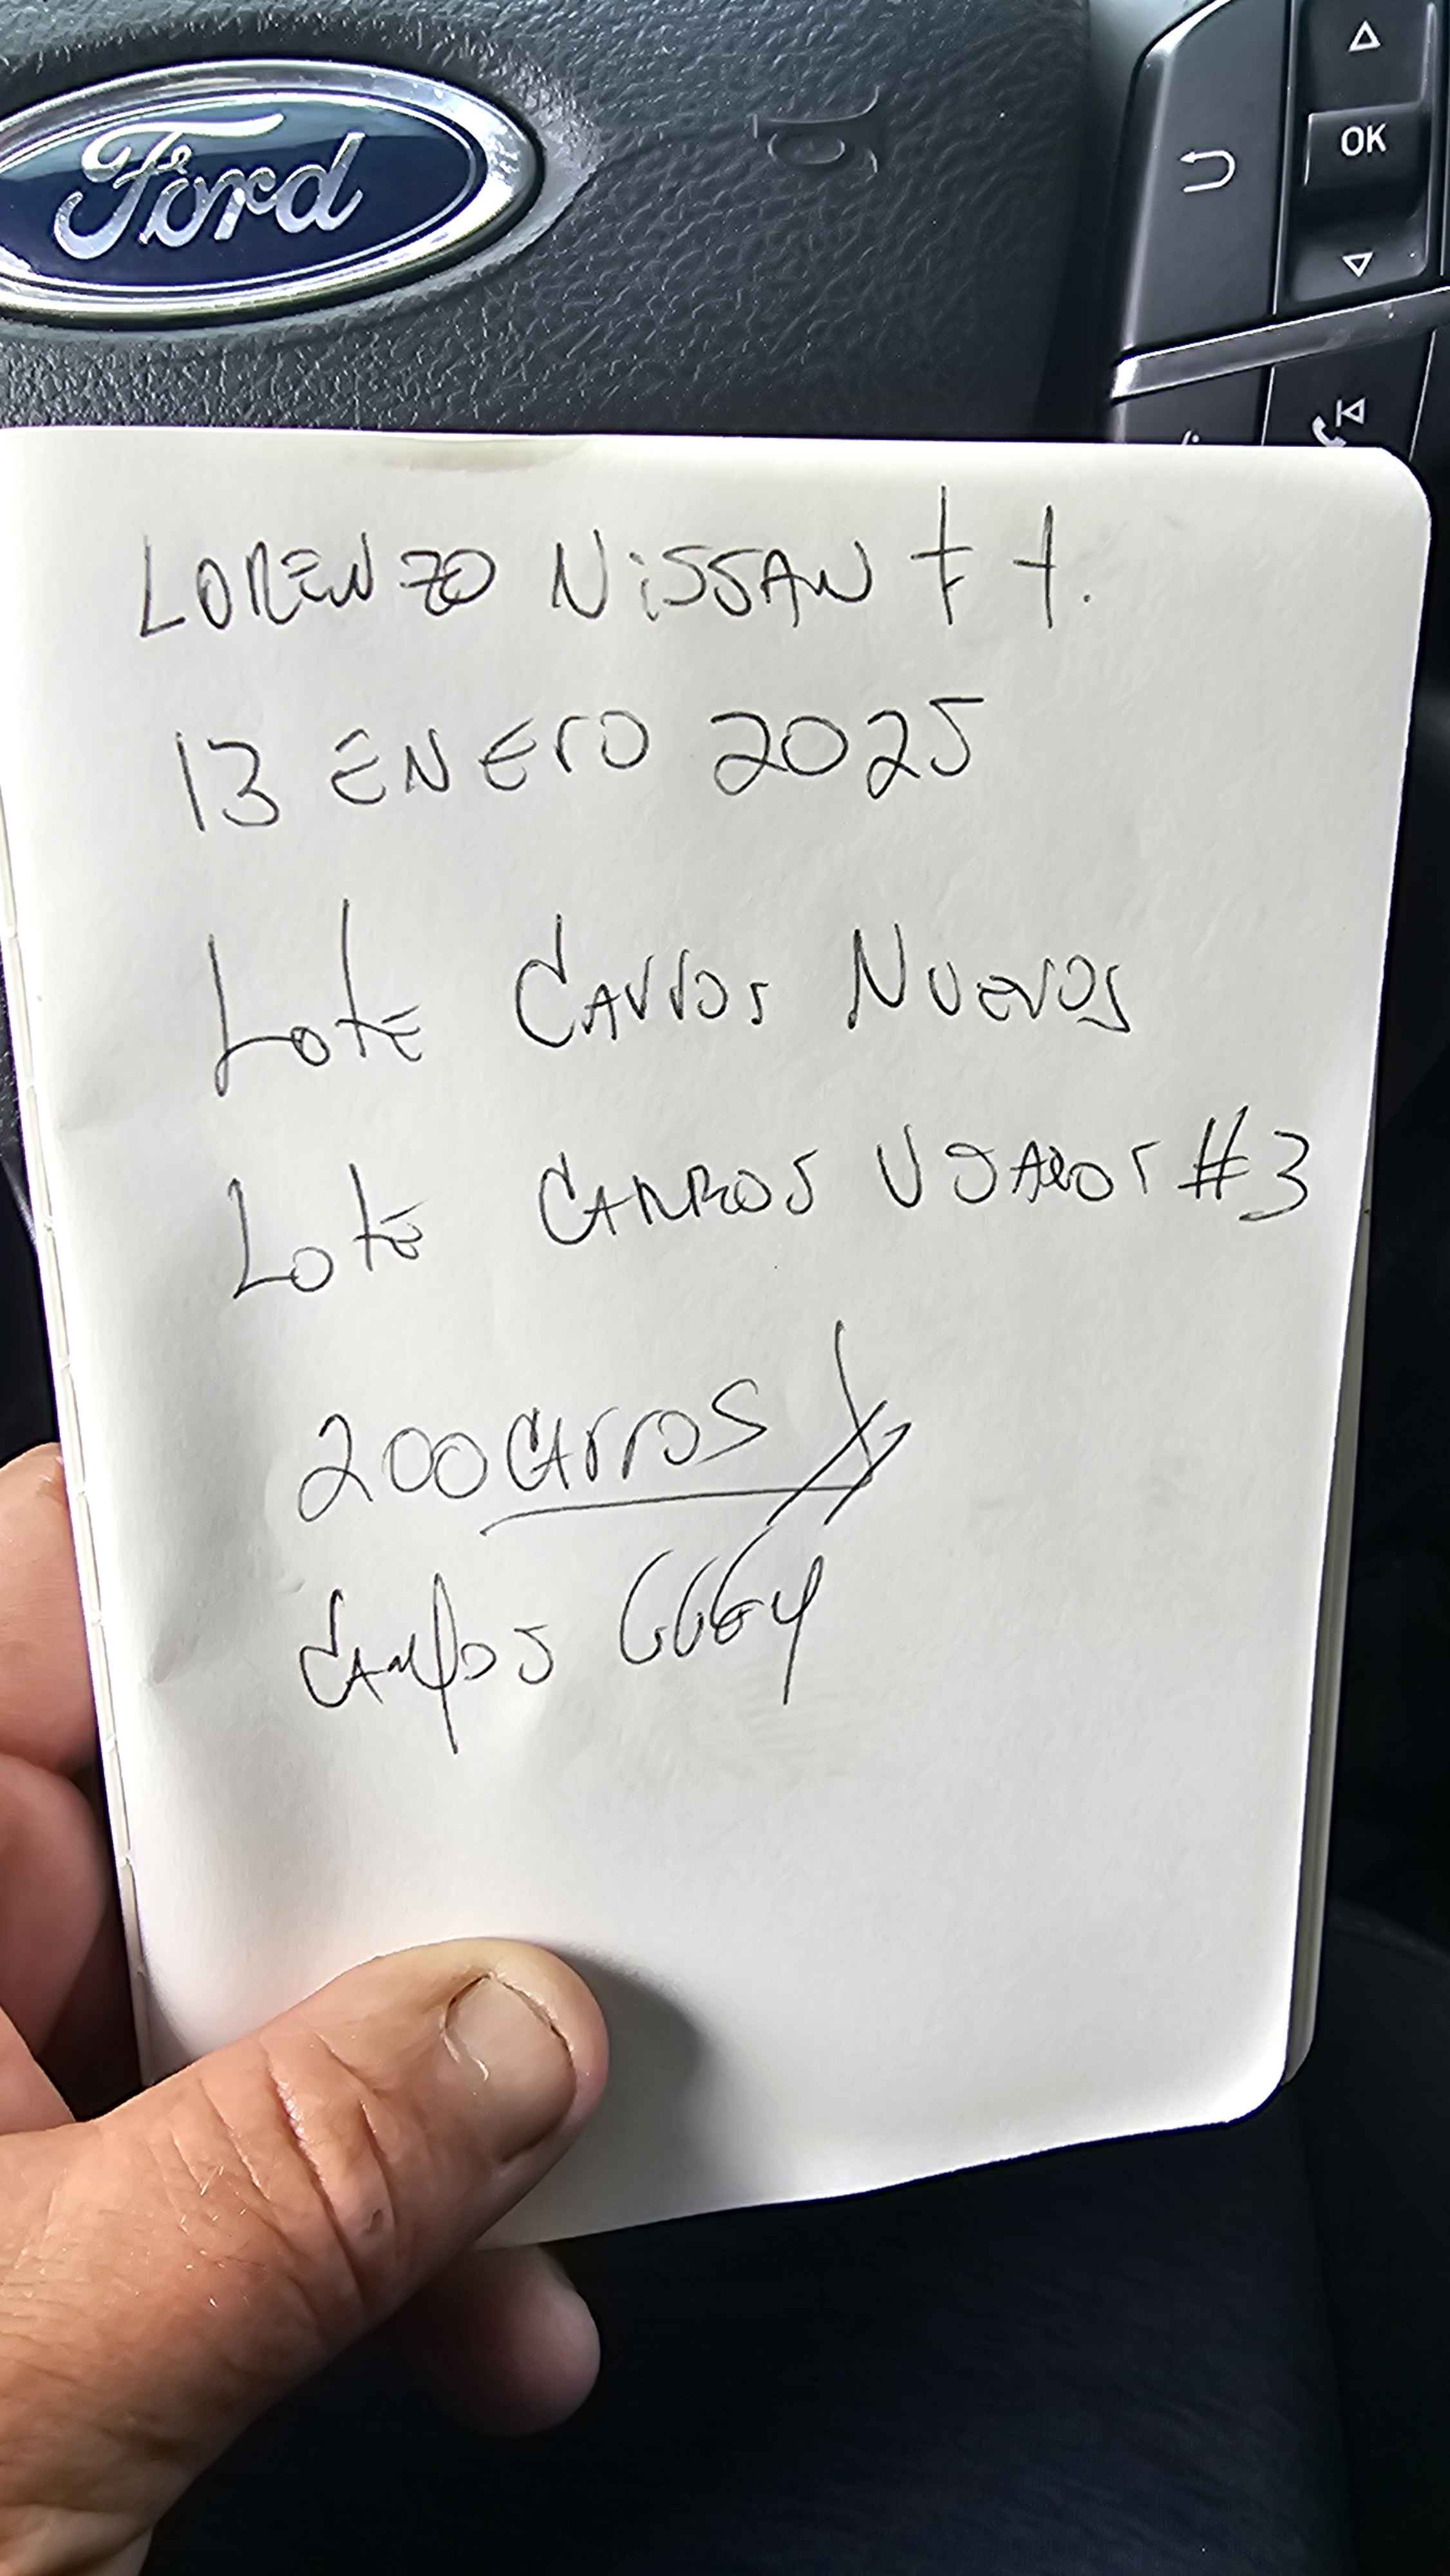 Ford
OK
LORENZO NISSAN
13 ENERO 2025
Lote Carros Nuevos
Lote CARROS USADOS #3
200 CArros
CAMPOS